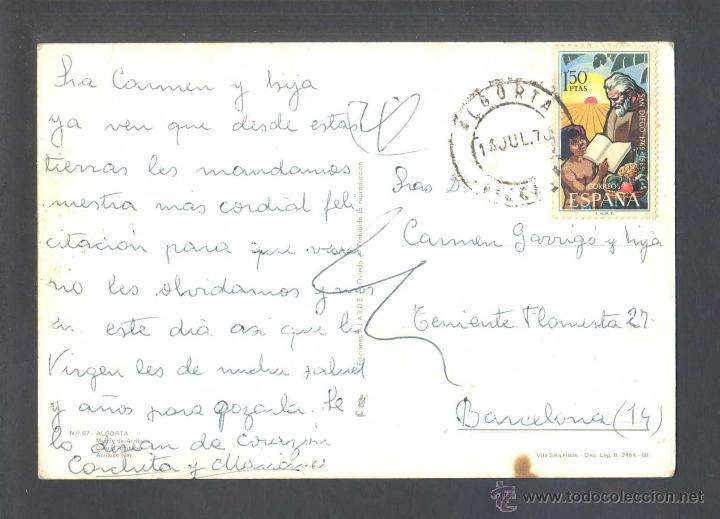 Sra Carmen y hija
ya ven que desde estas
tierras les mandamos
nuestra más cordial feli
citación para que vean
no les olvidamos y menos
en este día asi que la
Virgen les de mucha salud
y años para gozarla. Se
lo desean de corazón
Conchita y María
Nº 67 - ALGORTA
Muelle de
Ediciones ALARDE - Oviedo - Prohibida la reproducción
ALGORTA
1 JUL.7
1,50
PTAS
SAN DIEGO 1769-1969
CORREOS
ESPAÑA
F.N.M.T.
Sras D.
Carmen Garrigó y hija
Teniente Flomesta 27.
Barcelona (14)
Vila Sala Hnos. - Dep. Leg. B. 2454 - 68
www.todocoleccion.net